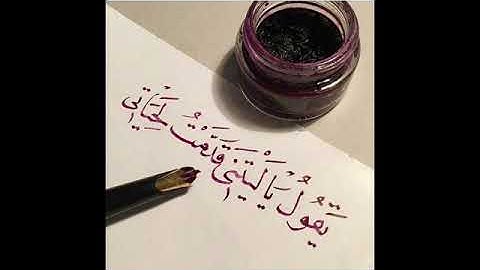 يَقُولُ يَا لَيْتَنِي قَدَّمْتُ لِحَيَاتِي